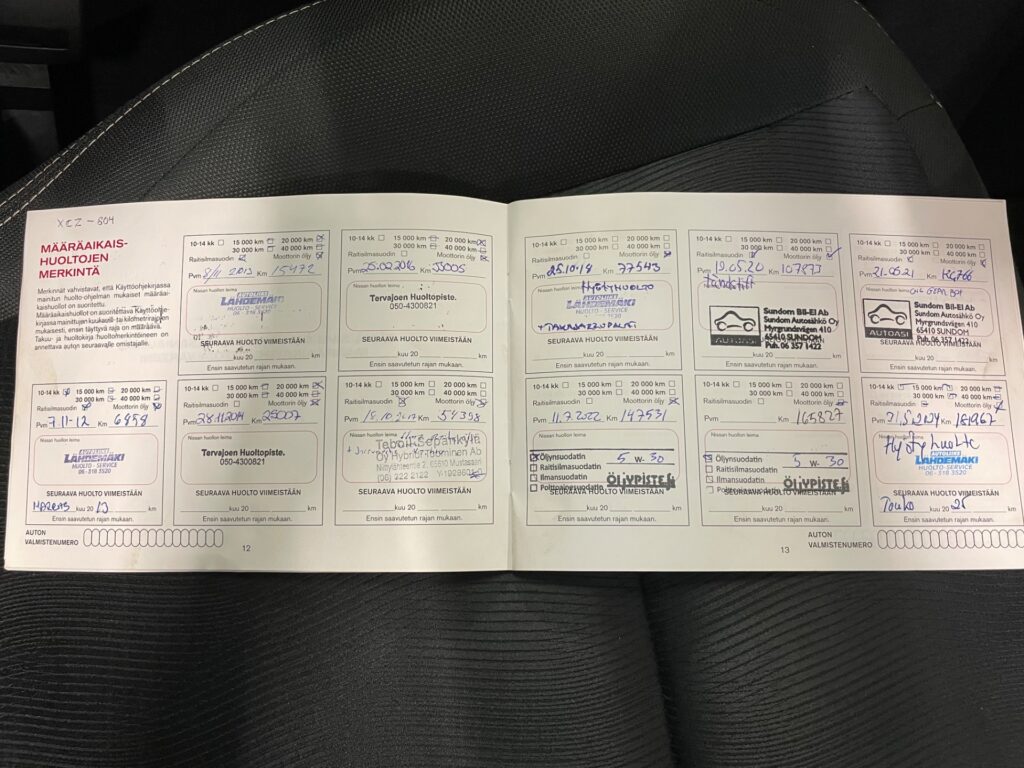 XEZ-804
MÄÄRÄAIKAIS-
HUOLTOJEN
MERKINTÄ
Merkinnät vahvistavat, että Käyttöohjekirjassa
mainitun huolto-ohjelman mukaiset määräai-
kaishuollot on suoritettu.
Määräaikaishuollot on suoritettava Käyttöohje-
kirjassa mainittujen kuukausi- tai kilometrirajojen
mukaisesti, ensin täyttyvä raja on määräävä.
Takuu- ja huoltokirja huoltomerkintöineen on
annettava auton seuraavalle omistajalle.
10-14 kk 15 000 km 20 000 km
30 000 km 40 000 km
Raitisilmasuodin Moottorin öljy
Pvm 7.11-12 Km 6858
Nissan huollon leima
LÄHDEMÄKI
HUOLTO - SERVICE
06-318 3520
SEURAAVA HUOLTO VIIMEISTÄÄN
kuu 20 13 km
Ensin saavutetun rajan mukaan.
10-14 kk 15 000 km 20 000 km
30 000 km 40 000 km
Raitisilmasuodin Moottorin öljy
Pvm 8/11 2013 Km 15472
Nissan huollon leima
AUTOLIIKE
LÄHDEMÄKI
HUOLTO - SERVICE
SEURAAVA HUOLTO VIIMEISTÄÄN
kuu 20 km
Ensin saavutetun rajan mukaan.
10-14 kk 15 000 km 20 000 km
30 000 km 40 000 km
Raitisilmasuodin Moottorin öljy
Pvm 28.11.2014 Km 25007
Nissan huollon leima
Tervajoen Huoltopiste.
050-4300821
SEURAAVA HUOLTO VIIMEISTÄÄN
kuu 20 km
Ensin saavutetun rajan mukaan.
10-14 kk 15 000 km 20 000 km
30 000 km 40 000 km
Raitisilmasuodin Moottorin öljy
Pvm 25.02.2016 Km 35005
Nissan huollon leima
Tervajoen Huoltopiste.
050-4300821
SEURAAVA HUOLTO VIIMEISTÄÄN
kuu 20 km
Ensin saavutetun rajan mukaan.
10-14 kk 15 000 km 20 000 km
30 000 km 40 000 km
Raitisilmasuodin Moottorin öljy
Pvm Km 54398
Nissan huollon leima
Oy Hybrid Tebinen Ab
65610 Mustasaari
(06) 322 2122
SEURAAVA HUOLTO VIIMEISTÄÄN
kuu 20 km
Ensin saavutetun rajan mukaan.
AUTON
VALMISTENUMERO
12
10-14 kk 15 000 km 20 000 km
30 000 km 40 000 km
Raitisilmasuodin Moottorin öljy
Pvm 25.10.18 Km 77543
Nissan huollon leima
HYÖTYHUOLTO
LÄHDEMÄKI
HUOLTO - SERVICE
SEURAAVA HUOLTO VIIMEISTÄÄN
kuu 20 km
Ensin saavutetun rajan mukaan.
10-14 kk 15 000 km 20 000 km
30 000 km 40 000 km
Raitisilmasuodin Moottorin öljy
Pvm 11.7.2022 Km 147531
Öljynsuodatin 5 W- 30
Raitisilmasuodatin
Ilmansuodatin
Polttoainesuodatin ÖLJYPISTE
SEURAAVA HUOLTO VIIMEISTÄÄN
kuu 20 km
Ensin saavutetun rajan mukaan.
10-14 kk 15 000 km 20 000 km
30 000 km 40 000 km
Raitisilmasuodin Moottorin öljy
Pvm 19.05.20 Km 107873
Nissan huollon leima
Sundom Bil-El Ab
Sundom Autosähkö Oy
Myrgrundsvägen 410
65410 SUNDOM
Puh. 06 357 1422
AUTOASI
SEURAAVA HUOLTO VIIMEISTÄÄN
kuu 20 km
Ensin saavutetun rajan mukaan.
10-14 kk 15 000 km 20 000 km
30 000 km 40 000 km
Raitisilmasuodin Moottorin öljy
Pvm Km 165827
Öljynsuodatin 5 W- 30
Raitisilmasuodatin
Ilmansuodatin
Polttoainesuodatin ÖLJYPISTE
SEURAAVA HUOLTO VIIMEISTÄÄN
kuu 20 km
Ensin saavutetun rajan mukaan.
10-14 kk 15 000 km 20 000 km
30 000 km 40 000 km
Raitisilmasuodin Moottorin öljy
Pvm 21.0521 Km
Nissan huollon leima
Sundom Bil-El Ab
Sundom Autosähkö Oy
Myrgrundsvägen 410
65410 SUNDOM
Puh. 06 357 1422
AUTOASI
SEURAAVA HUOLTO VIIMEISTÄÄN
kuu 20 km
Ensin saavutetun rajan mukaan.
10-14 kk 15 000 km 20 000 km
30 000 km 40 000 km
Raitisilmasuodin Moottorin öljy
Pvm 21.5.2024 Km 181967
Nissan huollon leima
Hyötyhuolto
AUTOLIIKE
LÄHDEMÄKI
HUOLTO - SERVICE
06-318 3520
SEURAAVA HUOLTO VIIMEISTÄÄN
Touko kuu 20 25 km
Ensin saavutetun rajan mukaan.
13
AUTON
VALMISTENUMERO